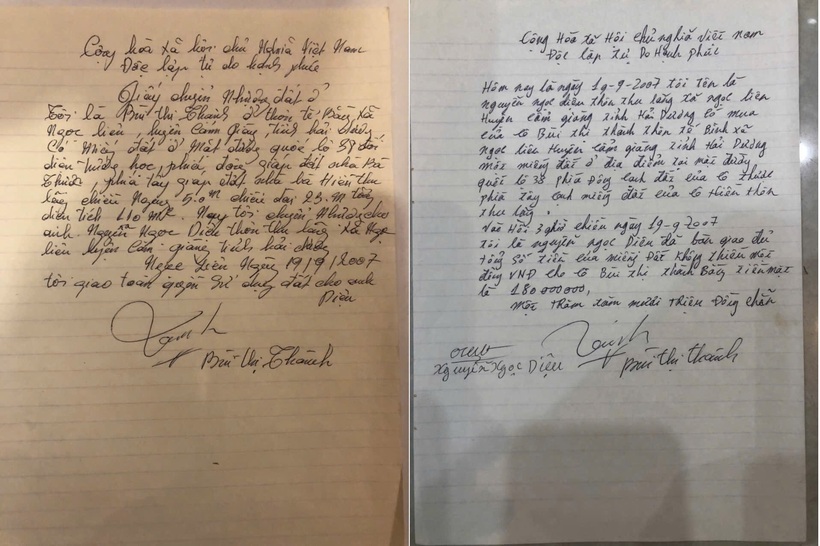 Cộng hòa xã hội chủ nghĩa Việt Nam
Độc lập tự do hạnh phúc
Giấy chuyển nhường đất ở
Tôi là Bùi Thị Thành ở thôn tế Bằng xã
Ngọc liên, huyện Cẩm Giàng tỉnh hải dương
Có miếng đất ở mặt đường quốc lộ 38 đối
diện trường học, phía đông giáp đất nhà bà
Thước, phía tây giáp đất nhà bà Hiên thu
lãng chiều Ngang 5.0m chiều dài 23.m tổng
diện tích 110 m². Nay tôi chuyển nhường cho
anh Nguyễn Ngọc Diệu thôn thu lãng xã Ngọc
liên huyện Cẩm giàng tỉnh hải dương
Ngọc Liên Ngày 19/9/2007
tôi giao toàn quyền sử dụng đất cho anh
Diệu
Bùi Thị Thành
Cộng Hòa xã Hội chủ nghĩa việt nam
Độc lập tự Do Hành phúc
Hôm nay là ngày 19-9-2007 tôi tên là
nguyễn ngọc diệu thôn thu lãng xã ngọc liên
Huyện cẩm giàng tỉnh Hải Dương có mua
của cô Bùi thị thành thôn tế Bình xã
ngọc liên Huyện cẩm giàng tỉnh Hải Dương
một miếng đất ở địa điểm tại mặt đường
quốc lộ 38 phía Đông cạnh đất của cô thước
phía tây cạnh miếng đất của cô Hiên thôn
thu lãng.
Vào Hồi 3 giờ chiều ngày 19-9-2007
tôi là nguyễn ngọc Diệu đã bàn giao đủ
tổng số tiền của miếng Đất không thiếu một
đồng VNĐ cho cô Bùi thị thành Bằng tiền mặt
là 180000000,
một trăm tám mươi triệu Đồng chẵn
Nguyễn Ngọc Diệu
Bùi thị thành